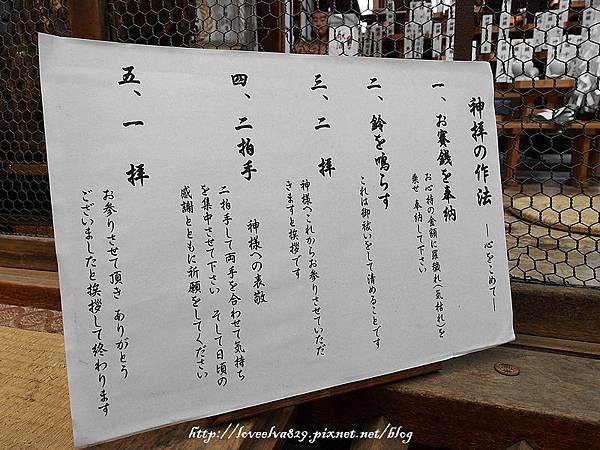 神拝の作法 ―心をこめて―
一、お賽銭を奉納
お心持の金額に罪穢れ(気枯れ)を
乗せ 奉納して下さい
二、鈴を鳴らす
これは御祓いをして清めることです
三、二 拝
神様へこれからお参りさせていただ
きますと挨拶です
四、二拍手
神様への表敬
二拍手して両手を合わせて気持ち
を集中させて下さい そして日頃の
感謝とともに祈願をしてください
五、一 拝
お参りさせて頂き ありがとう
ございましたと挨拶して終わります
http://loveelva829.pixnet.net/blog